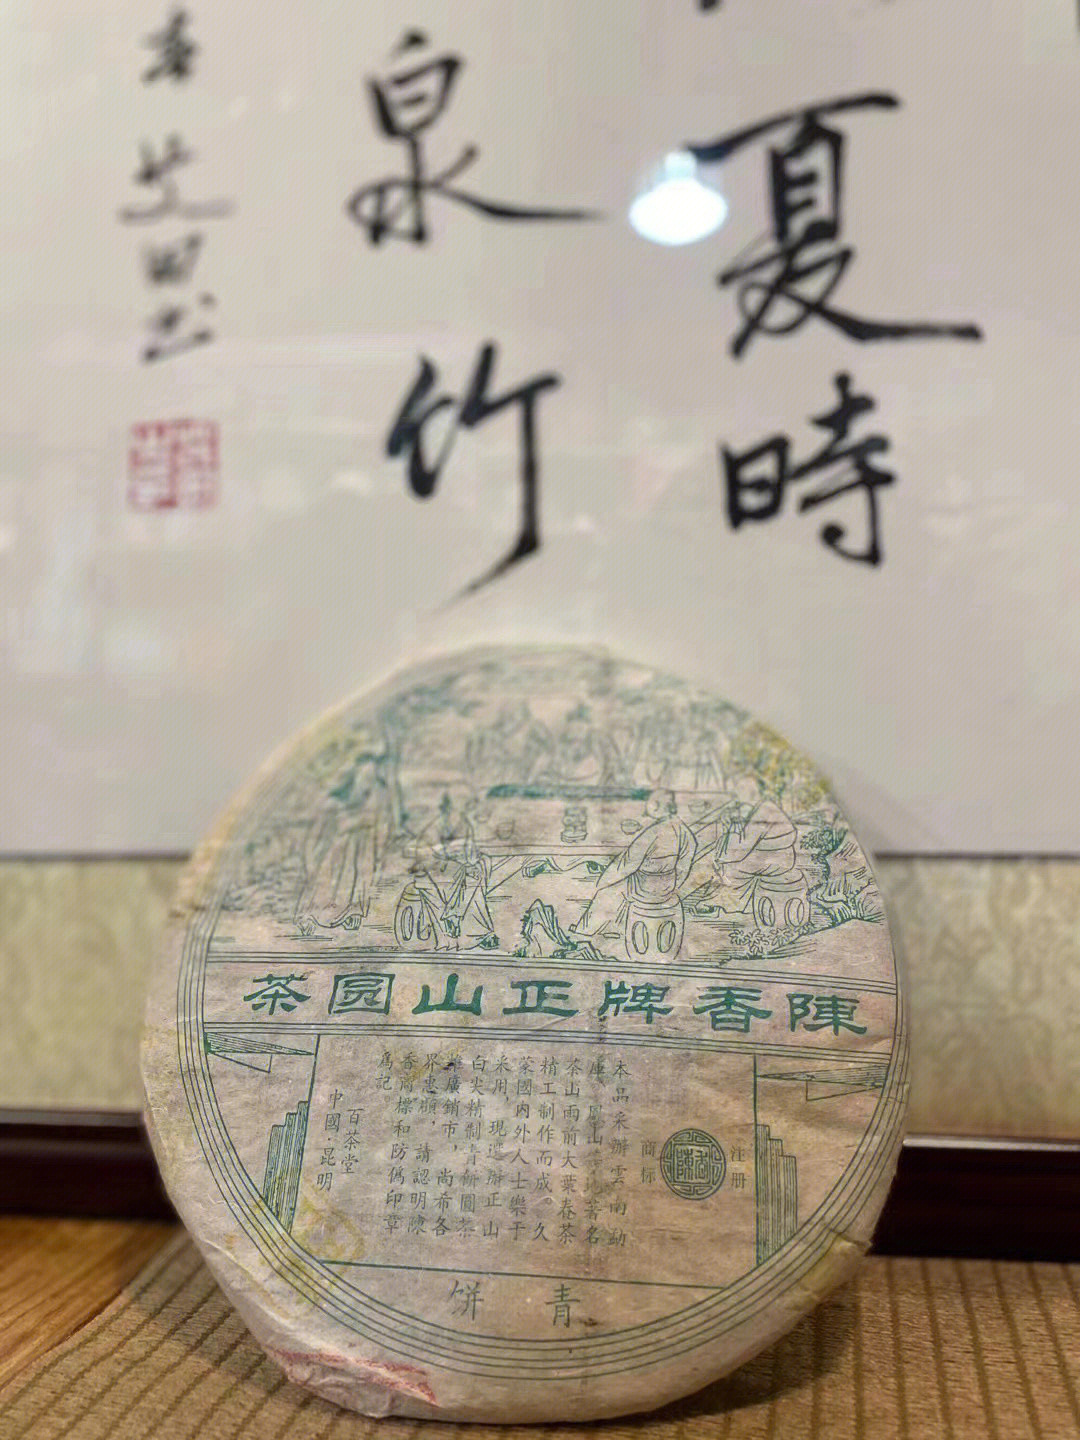 夏時
泉竹
艾田书
陳香牌正山圆茶
注册
商标
本品采辦雲南勐
庫、鳳山等地著名
茶山雨前大葉春茶
精工制作而成。久
茶國内外人士樂于
采用，現選辦正山
白尖精制青餅圓茶
推廣銷市，尚希各
界惠顧，請認明陳
香商標和防僞印章
爲記。
百茶堂
中國·昆明
青餅